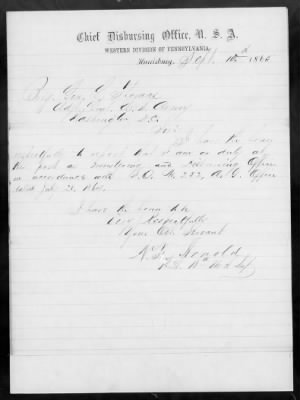 Chief Disbursing Office, U. S. A.
WESTERN DIVISION OF PENNSYLVANIA,
Harrisburg, Sept. 10th 1862
Brig. Gen. L. Thomas
Adjt. Genl. U. S. Army
Washington D.C.
Sir:
I have the honor
respectfully to report that I am on duty at
this post as Mustering and Disbursing Officer
in accordance with S.O. No. 233, A. G. Office
dated July 23, 186
I have the honor to be
Very Respectfully
Your Obt. Servant
Arnold